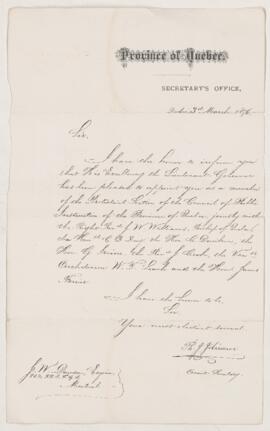 Province of Quebec.
SECRETARY'S OFFICE,
Quebec 3rd March 1876
Sir,
I have the honor to inform you
that His Excellency the Lieutenant Governor
has been pleased to appoint you as a member
of the Protestant Section of the Council of Public
Instruction of the Province of Quebec jointly with
the Right Revd J W Williams, Bishop of Quebec,
the Honble C D Day the Hon C Dunkin, the
Hon G Irvine the Revd J Cook, the Venble
Archdeacon W. Leach and the Hon James
Ferrier
I have the honor to be,
Sir
Your most obedient servant,
J. W. Dawson Esquire
Montreal
Ph J Jolicoeur
Assist Secretary